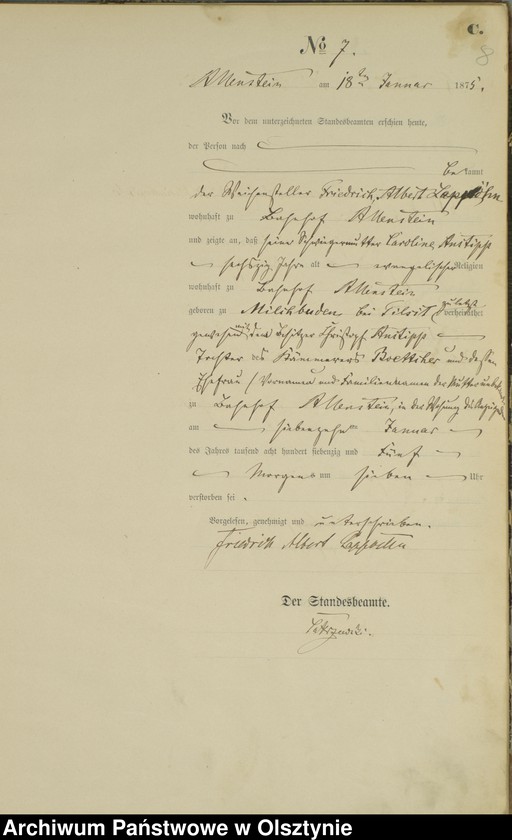 C.
8
No 7.
Allenstein am 18ten Januar 1875.
Vor dem unterzeichneten Standesbeamten erschien heute,
der Person nach
bekannt
der Weichensteller Friedrich Albert
wohnhaft zu Bahnhof Allenstein
und zeigte an, daß seine Schwiegermutter Caroline Anstipp
sechszig Jahre alt evangelischer Religion
wohnhaft zu Bahnhof Allenstein
geboren zu bei Tilsit, zuletzt verheirathet
gewesen mit dem Besitzer Christoph Anstipp
Tochter des Kämmerers Boettcher und dessen
Ehefrau (Vornamen und Familiennamen der Mutter
zu Bahnhof Allenstein, in der Wohnung des
am siebenzehn Januar
des Jahres tausend acht hundert siebenzig und fünf
Morgens um sieben Uhr
verstorben sei.
Vorgelesen, genehmigt und unterschrieben.
Friedrich Albert
Der Standesbeamte.
Archiwum Państwowe w Olsztynie